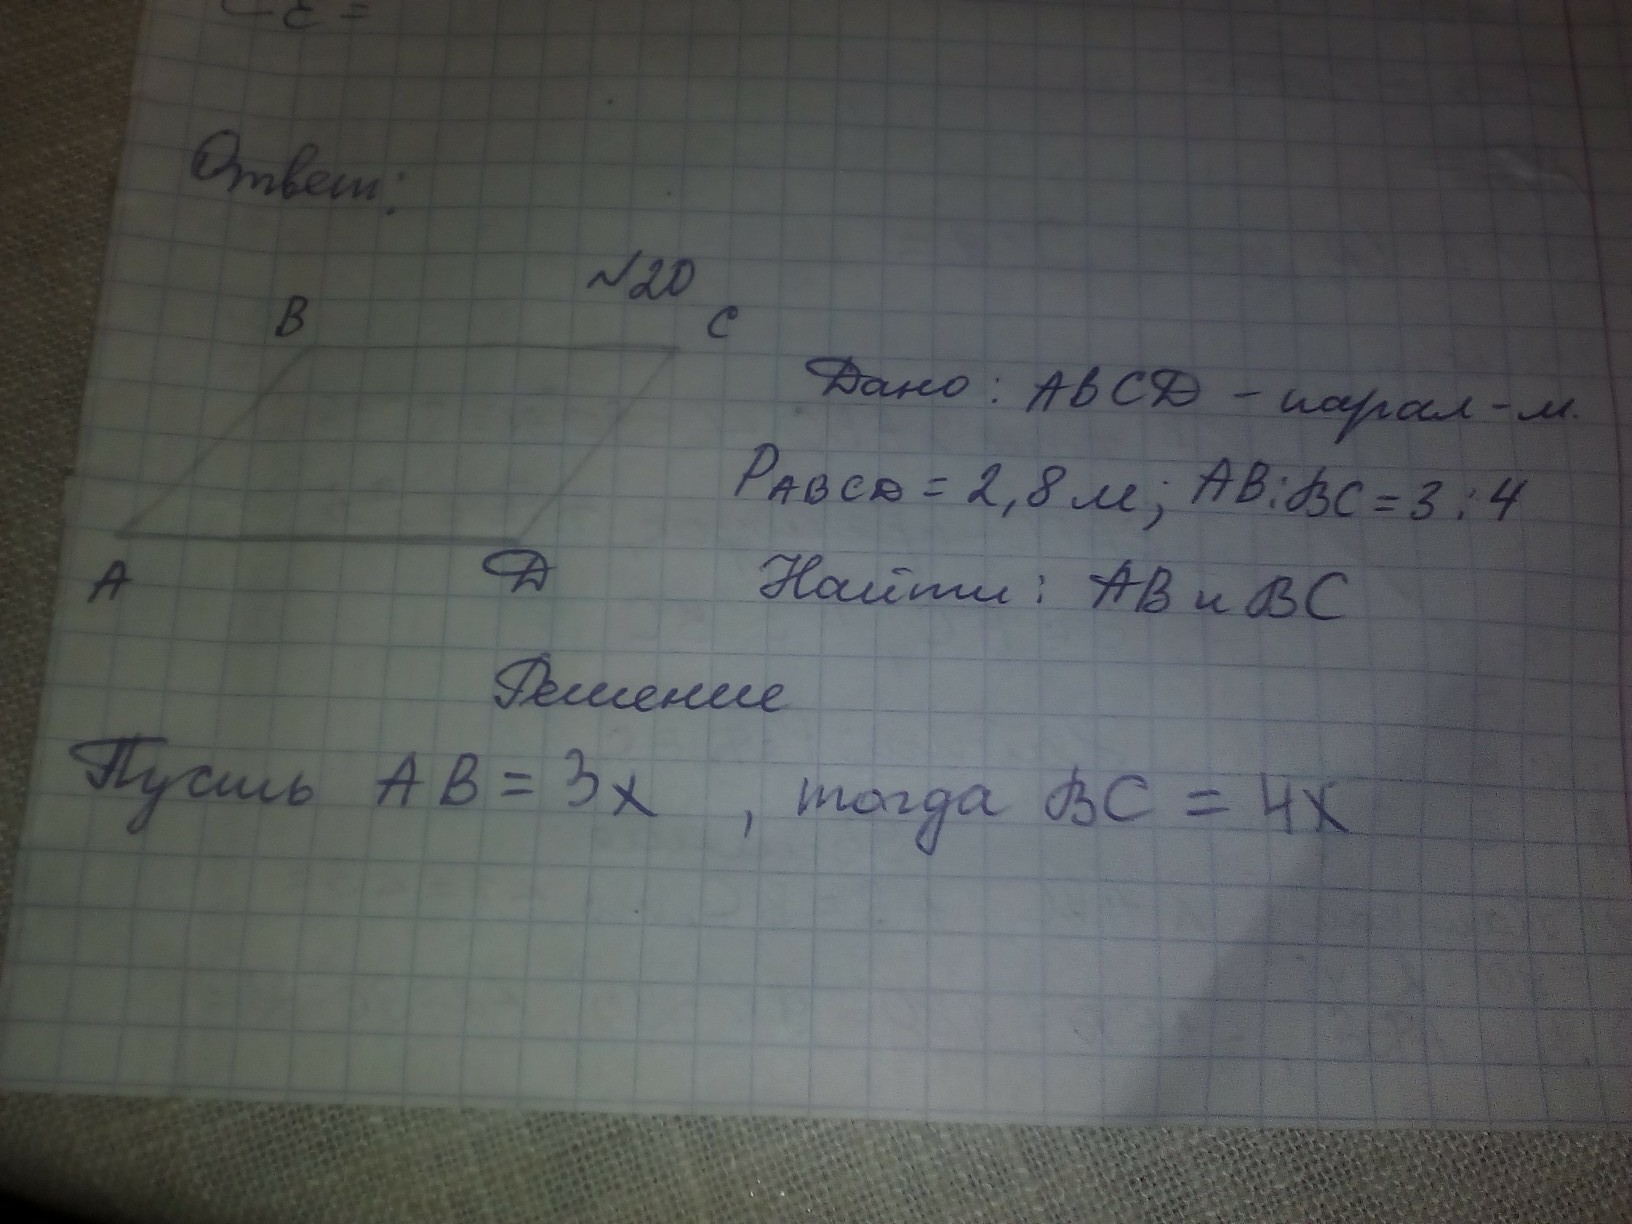 Ответ:
№20
B C
Дано: ABCД - парал-м.
PABCД = 2,8 м; AB:BC = 3:4
A Д
Найти: AB и BC
Решение
Пусть AB = 3x , тогда BC = 4x